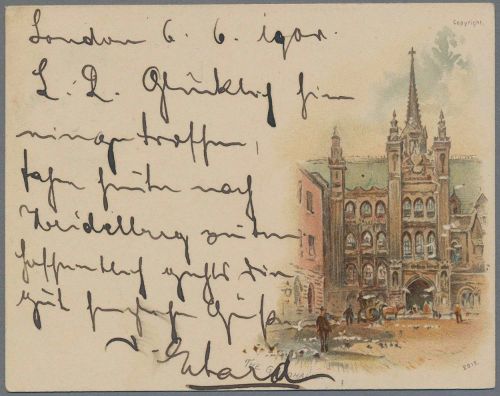 Copyright.
London 6. 6. 190
L. L. Glücklich hier
eingetroffen,
fahre heute nach
Heidelberg zurück
hoffentlich geht's Dir
gut herzliche Grüße
Erhard
THE G
2017.